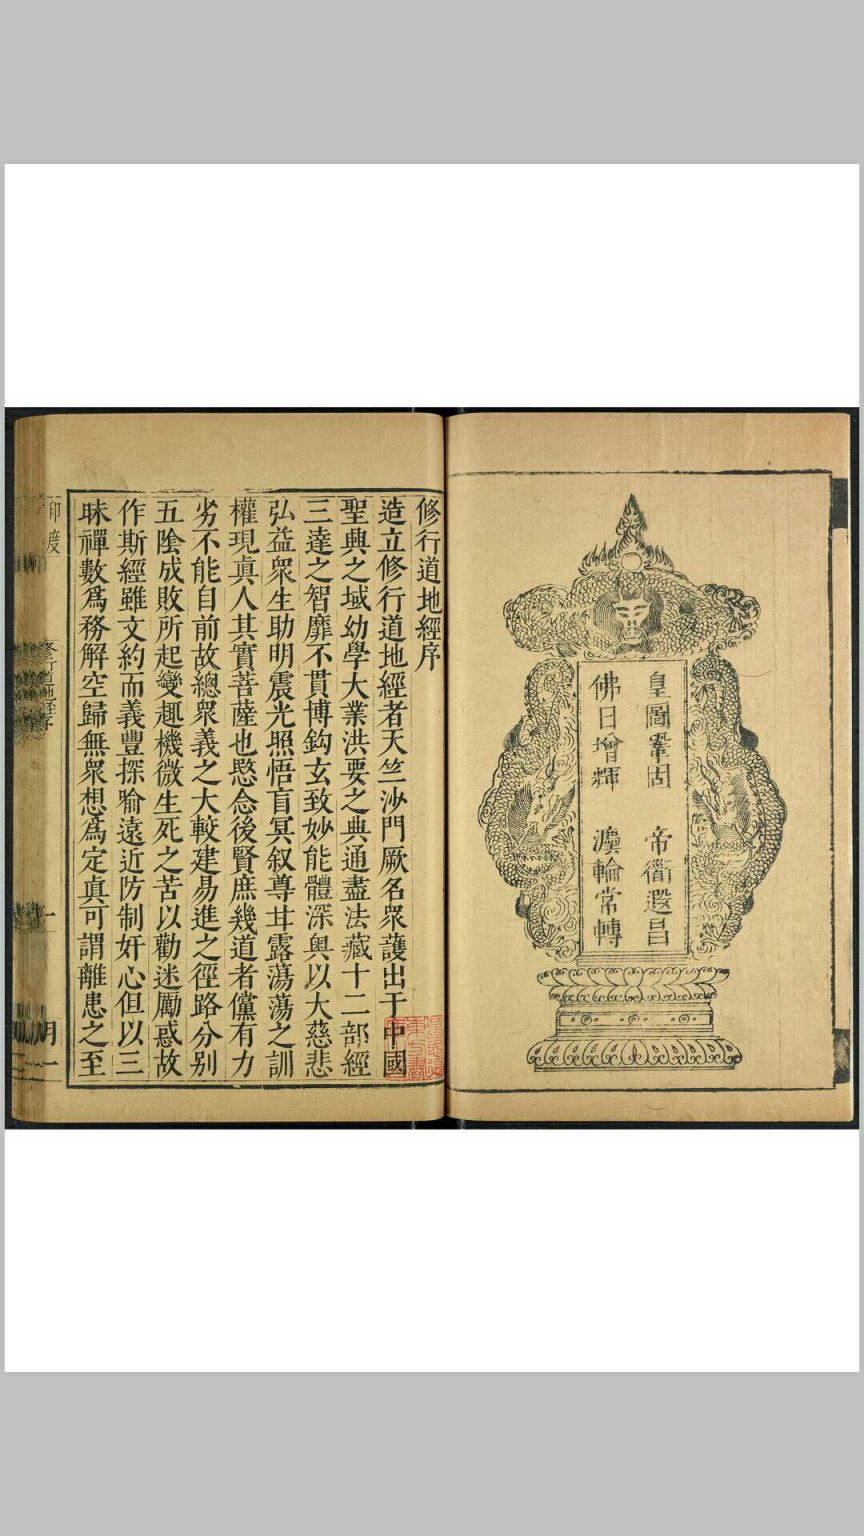 皇圖鞏固　帝衜遐昌
佛日增輝　灋輪常轉
修行道地經序
造立修行道地經者天竺沙門厥名衆護出于中國
聖典之域幼學大業洪要之典通盡法藏十二部經
三達之智靡不貫博鈎玄致妙能體深奥以大慈悲
弘益衆生助明震光照悟盲冥叙尊甘露蕩蕩之訓
權現真人其實菩薩也愍念後賢庶幾道者儻有力
劣不能自前故總衆義之大較建易進之徑路分别
五陰成敗所起變趣機微生死之苦以勸迷勵惑故
作斯經雖文約而義豐探喻遠近防制奸心但以三
昧禪數爲務解空歸無衆想爲定真可謂離患之至
修行道地經序
一